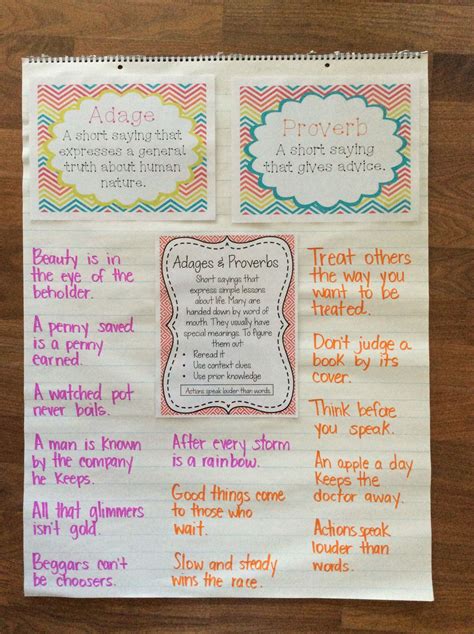 Adage
A short saying that
expresses a general
truth about human
nature.
Proverb
A short saying
that gives advice.
Beauty is in
the eye of the
beholder.
A penny saved
is a penny
earned.
A watched pot
never boils.
A man is known
by the company
he keeps.
All that glimmers
isn't gold.
Beggars can't
be choosers.
Adages & Proverbs
Short sayings that
express simple lessons
about life. Many are
handed down by word of
mouth. They usually have
special meanings. To figure
them out:
• Reread it
• Use context clues
• Use prior knowledge
Actions speak louder than words.
After every storm
is a rainbow.
Good things come
to those who
wait.
Slow and steady
wins the race.
Treat others
the way you
want to be
treated.
Don't judge a
book by its
cover.
Think before
you speak.
An apple a day
keeps the
doctor away.
Actions speak
louder than
words.